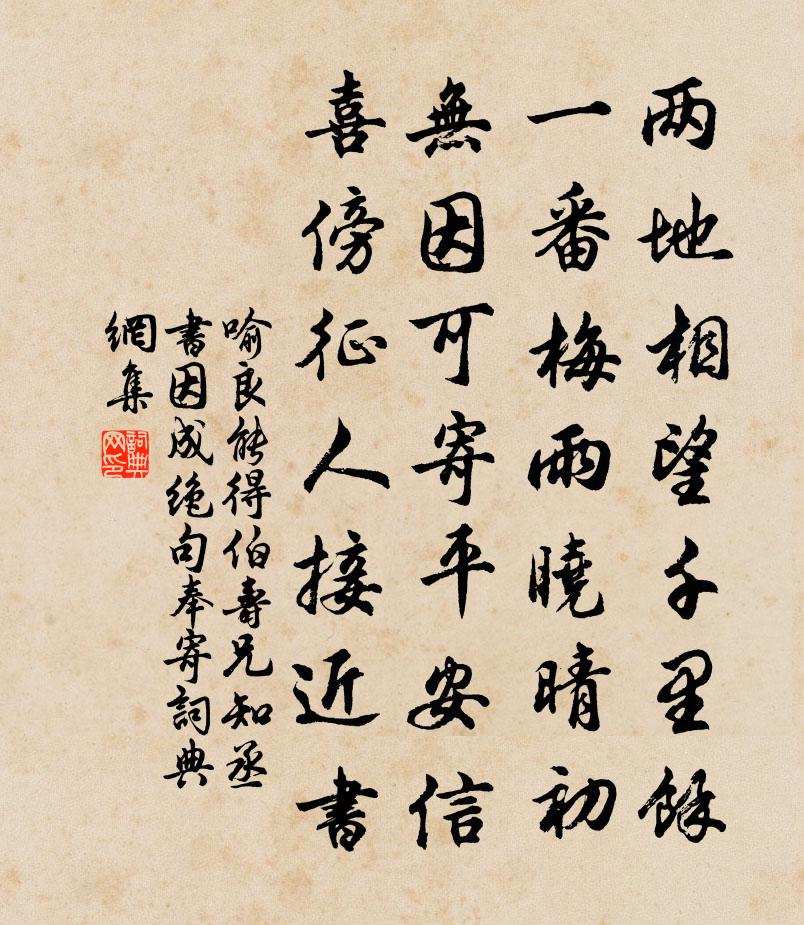 两地相望千里餘
一番梅雨曉晴初
無因可寄平安信
喜傍征人接近書
喻良能得伯壽兄知丞
書因成絶句奉寄詞典
網集
詞典网印